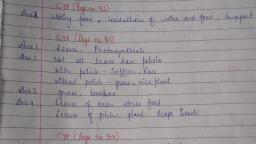 C.W (Page no 81)
Ans 2 Storing food, conduction of water and food, support
C.W (Page no 83)
Ans 1 Leaves, Photosynthesis
Ans 2 Not all leaves have petiole
with petiole - saffron, Rose
without petiole - grass, rice plant
Ans 3 grass, bamboo
Ans 4 Leaves of onion stores food
Leaves of pitcher plant traps insects
C.W (Page no